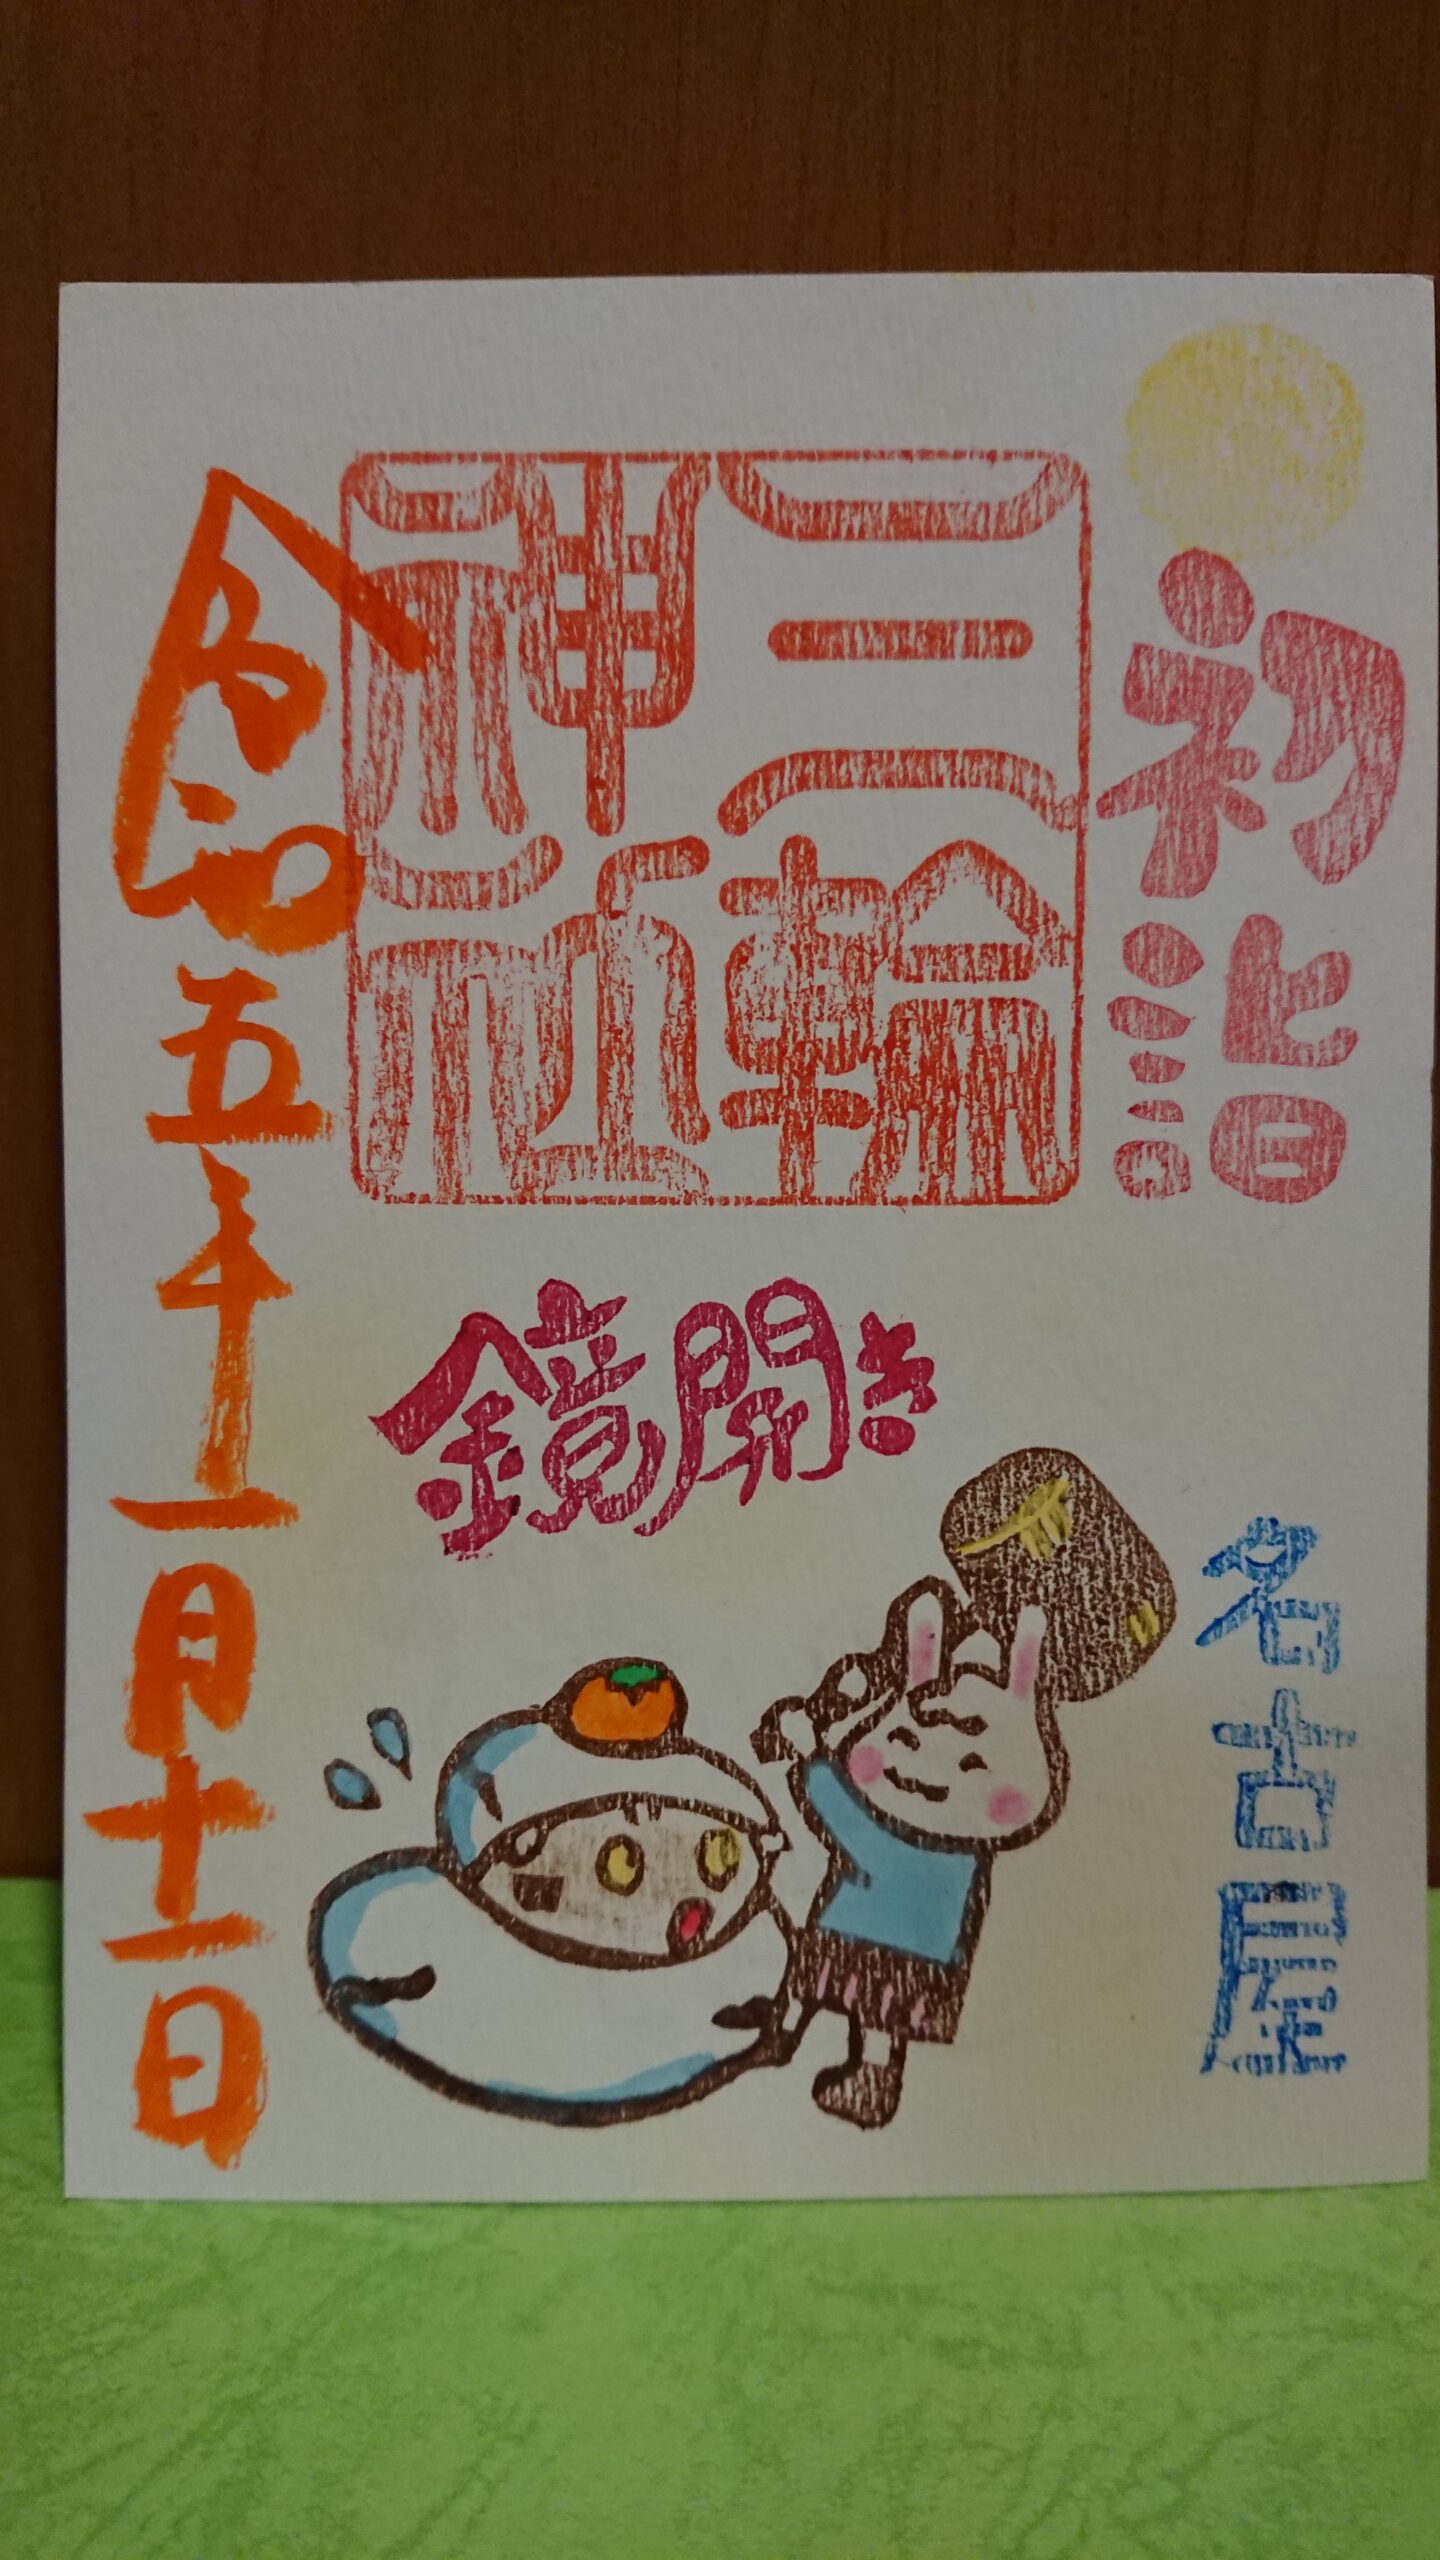 初詣
三輪
神社
鏡開き
名古屋
令和五年一月十一日